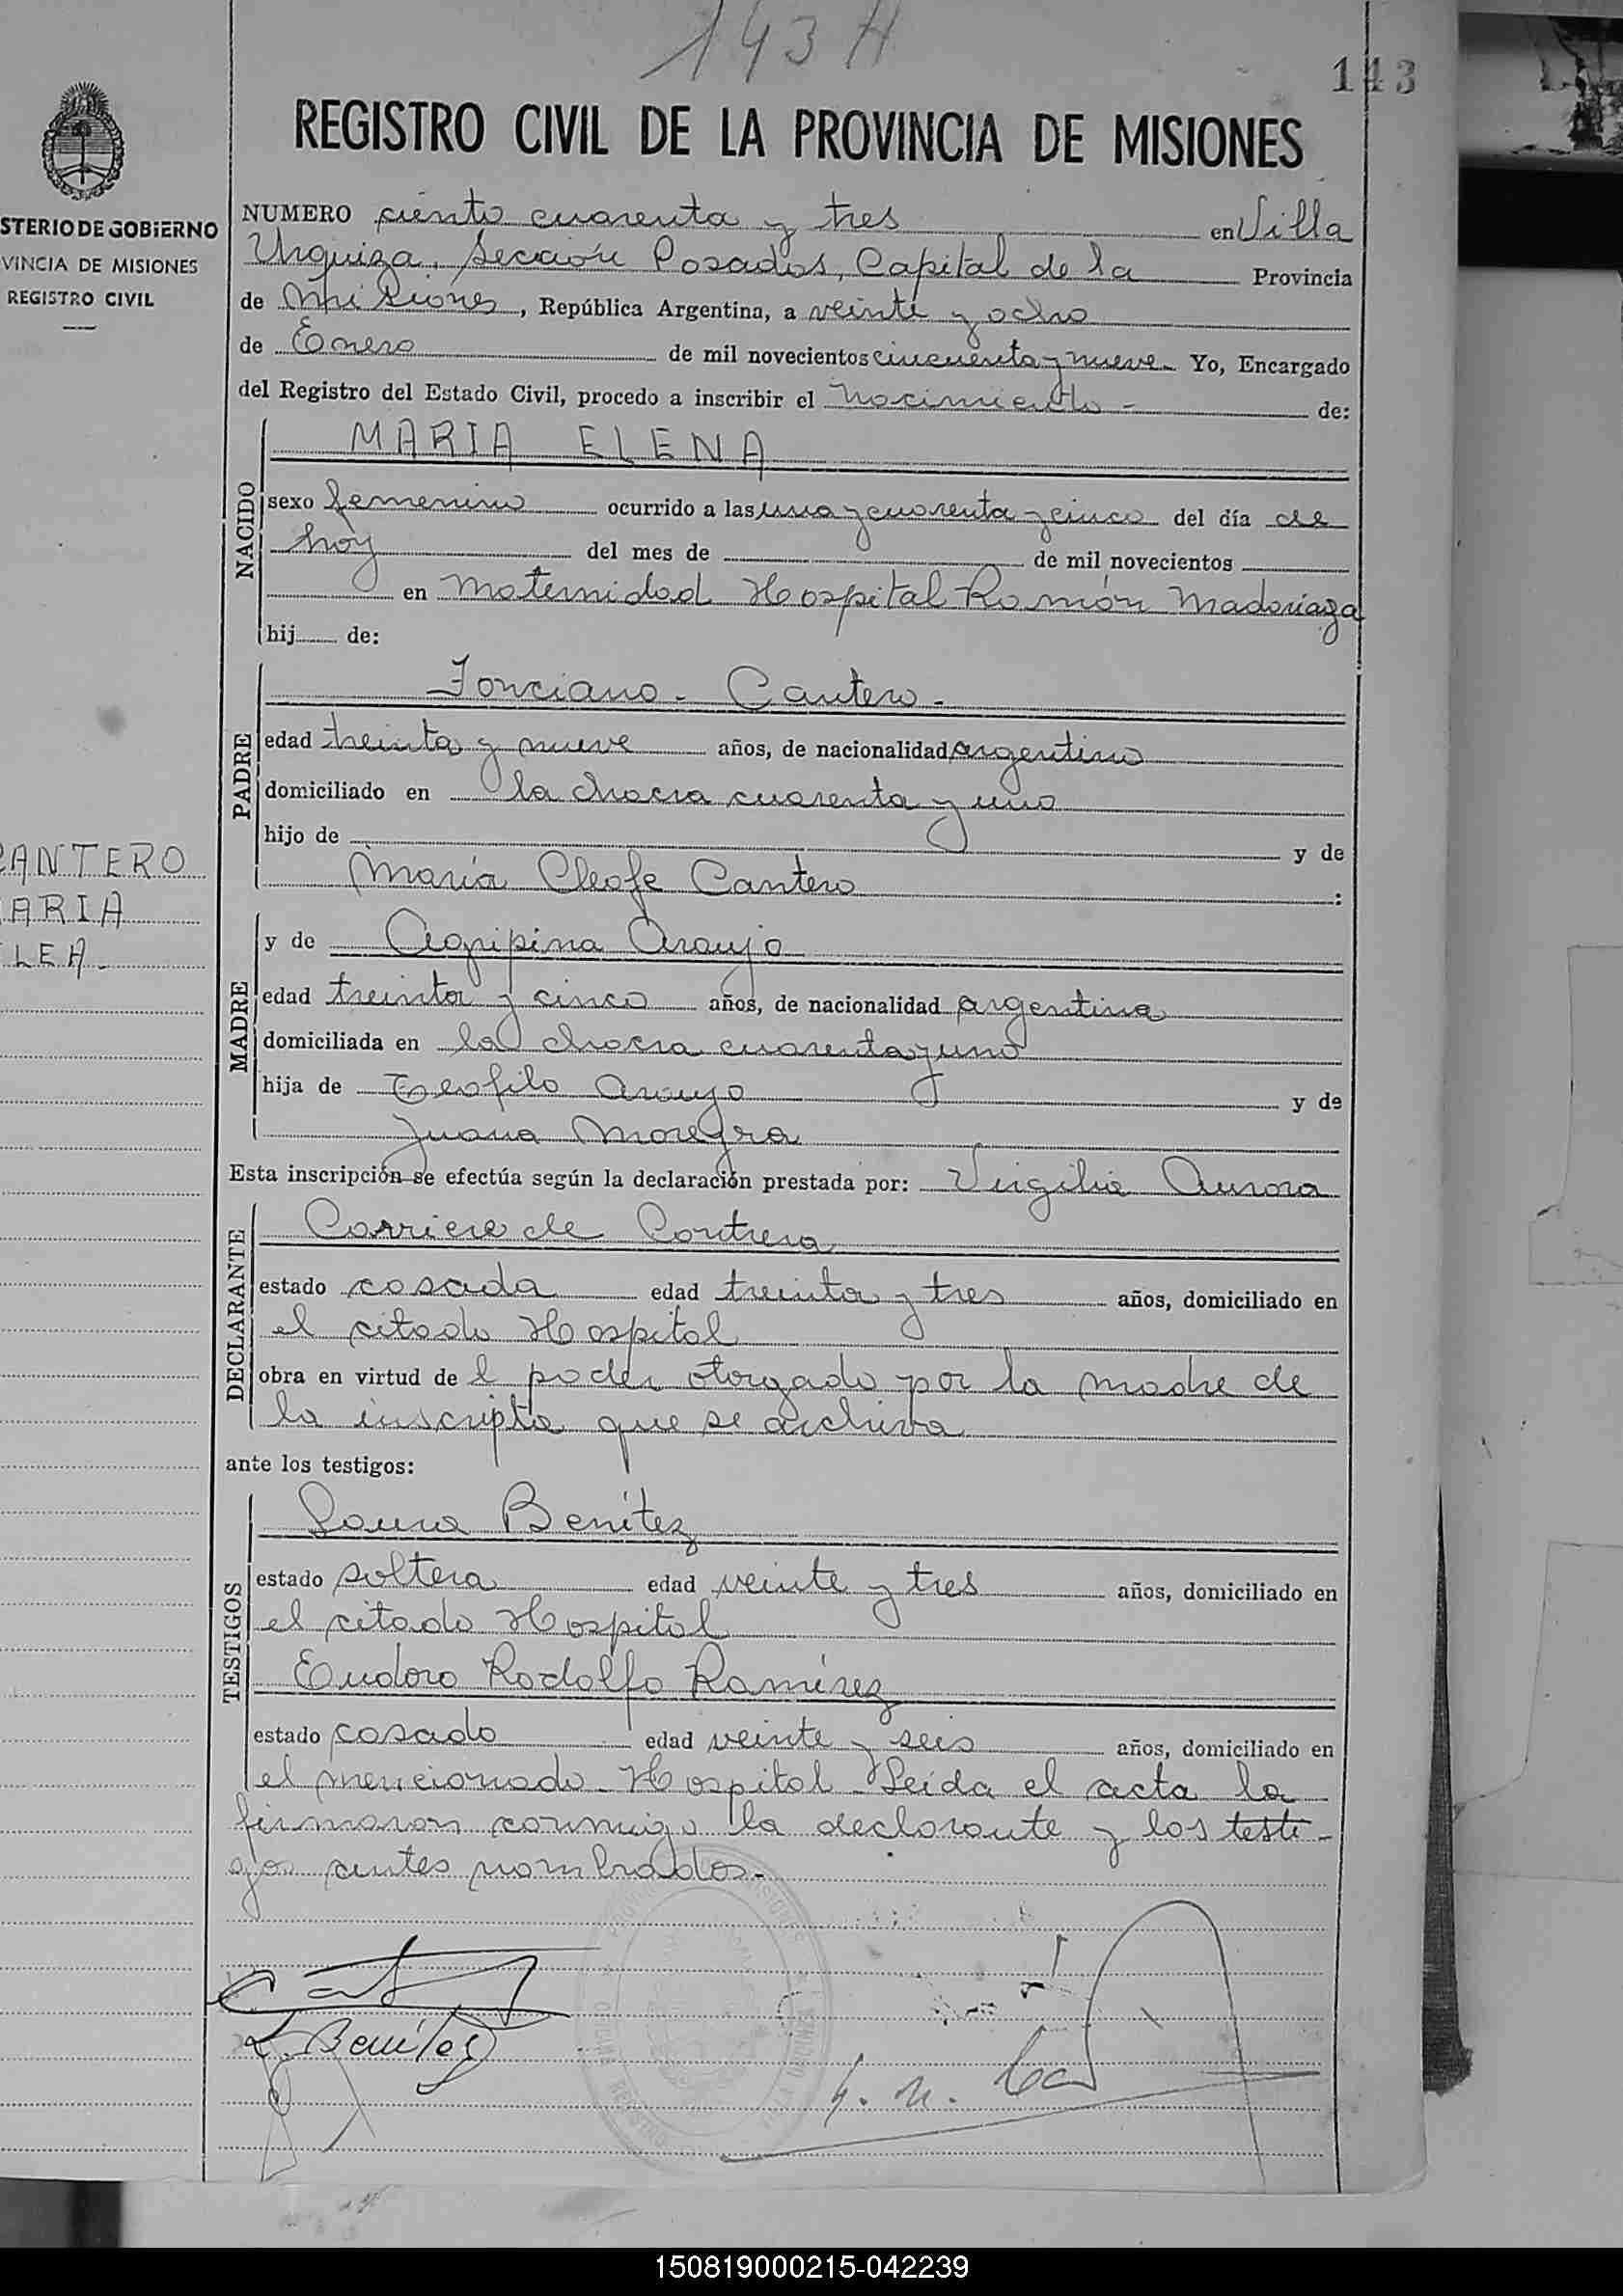 143 H
143
REGISTRO CIVIL DE LA PROVINCIA DE MISIONES
STERIO DE GOBIERNO
VINCIA DE MISIONES
REGISTRO CIVIL
NUMERO ciento cuarenta y tres en Villa
Urquiza, Sección Posadas, Capital de la Provincia
de Misiones, República Argentina, a veinte y ocho
de Enero de mil novecientos cincuenta y nueve. Yo, Encargado
del Registro del Estado Civil, procedo a inscribir el nacimiento - de:
NACIDO
MARIA ELENA
sexo femenino ocurrido a las una y cuarenta y cinco del día de
hoy del mes de de mil novecientos
en Maternidad Hospital Ramón Madariaga
hij de:
PADRE
Cantero -
edad treinta y nueve años, de nacionalidad argentino
domiciliado en la chacra cuarenta y uno
hijo de y de
María Cleofe Cantero :
CANTERO
ARIA
LEA -
MADRE
y de Agripina Araujo
edad treinta y cinco años, de nacionalidad argentina
domiciliada en la chacra cuarenta y uno
hija de Teofilo Araujo y de
Juana
Esta inscripción se efectúa según la declaración prestada por: Virgilia Aurora
DECLARANTE
de Contrera
estado casada edad treinta y tres años, domiciliado en
el citado Hospital
obra en virtud de l poder otorgado por la madre de
la inscripta que se archiva
ante los testigos:
TESTIGOS
Laura Benítez
estado soltera edad veinte y tres años, domiciliado en
el citado Hospital
Eudoro Rodolfo Ramírez
estado casado edad veinte y seis años, domiciliado en
el mencionado Hospital - Leída el acta la
firmaron conmigo la declarante y los testi-
gos antes nombrados.-
L. Benítez
150819000215-042239